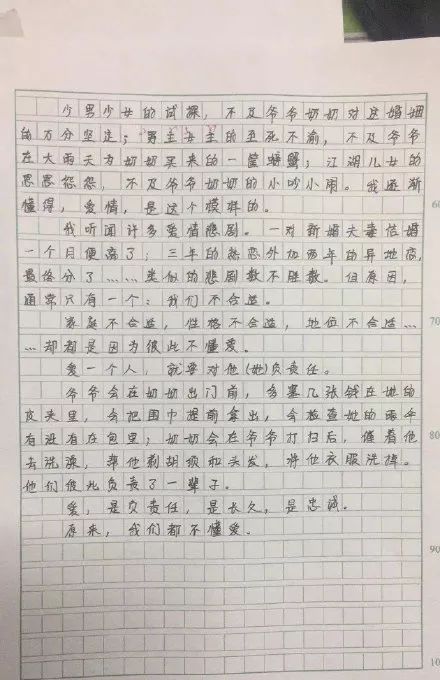 少男少女的试探，不及爷爷奶奶对这婚姻
的万分坚定；男主女主的至死不渝，不及爷爷
在大雨天为奶奶买来的一筐螃蟹；江湖儿女的
恩恩怨怨，不及爷爷奶奶的小吵小闹。我逐渐
懂得，爱情，是这个模样的。
60
我听闻许多爱情悲剧。一对新婚夫妻结婚
一个月便离了；三年的热恋外加两年的异地恋，
最终分了……类似的悲剧数不胜数。但原因，
通常只有一个：我们不合适。
家庭不合适，性格不合适，地位不合适…
70
…却都是因为彼此不懂爱。
爱一个人，就要对他(她)负责任。
爷爷会在奶奶出门前，多塞几张钱在她的
皮夹里，会把围巾提前拿出，会检查她的
有没有在包里；奶奶会在爷爷打扫后，催着他
80
去洗澡，帮他剃胡须和头发，将他衣服洗掉。
他们彼此负责了一辈子。
爱，是负责任，是长久，是忠诚。
原来，我们都不懂爱。
90
10